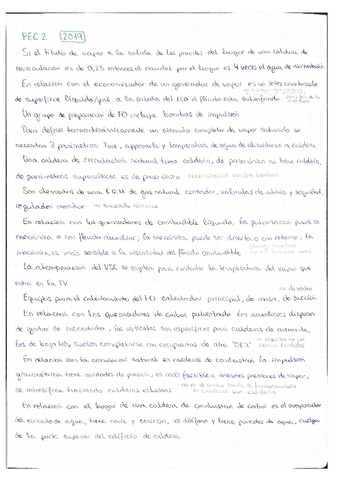 PEC 2 2019
Si el título de vapor a la salida de las paredes del hogar de una caldera de
recirculación es de 0,25 entonces el caudal por el hogar es 4 veces el agua de alimentación
En relación con el economizador de un generador de vapor es un intercambiador
de superficie líquido/gas, a la salida del ECO el fluido está subenfriado
Un grupo de preparación de FO incluye bombas de impulsión
Para definir termodinámicamente un circuito completo de vapor saturado se
necesitan 3 parámetros: Tsat, approach y temperatura de agua de alimentación a caldera
Una caldera de circulación natural tiene calderín, de paso único no tiene calderín,
de parámetros supercríticos es de paso único
Son elementos de una ERM de gas natural contador, válvulas de alivio y seguridad,
regulador monitor
En relación con los quemadores de combustible líquido, la pulverización puede ser
mecánica o con fluido auxiliar, la mecánica puede ser directa o con retorno, la
mecánica es más sensible a la viscosidad del fluido combustible
La atemperación del VSC se emplea para controlar la temperatura del vapor que
entra en la TV
Equipos para el calentamiento del FO calentador principal, de masa, de succión
En relación con los quemadores de carbón pulverizado los auxiliares disponen
de ignitor de encendido, los verticales son específicos para calderas de antracita,
los de bajo NOx suelen completarse con compuertas de aire "OFA"
En relación con la circulación natural en calderas de combustión, la impulsión
gravimétrica tiene unidades de presión, es más factible a menores presiones de vapor,
se intensifica haciendo calderas esbeltas
En relación con el hogar de una caldera de combustión de carbón es el evaporador
del circuito de agua, tiene nariz y cenicero, es diáfano y tiene paredes de agua, cuelga
de la parte superior del edificio de caldera